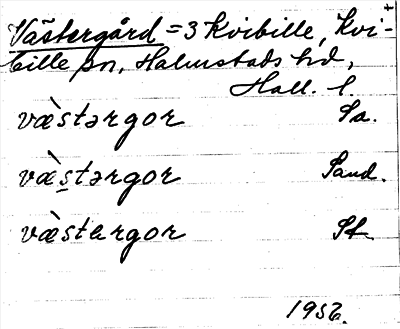 Västergård = 3 Kvibille, Kvi-
bille sn, Halmstads hd,
Hall. l.
væ̀stərgor Sa.
væ̀stərgor Sand.
væ̀stergor St.
1956.